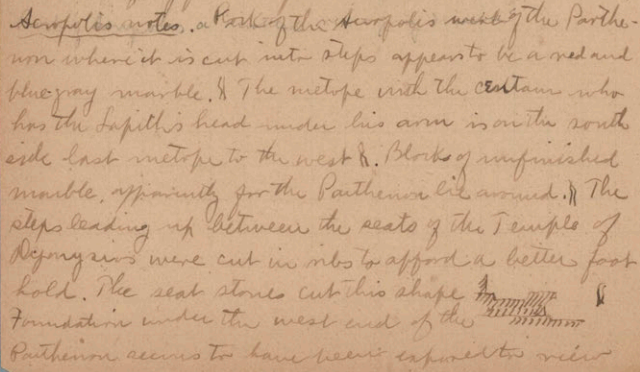 Acropolis notes. a Rock of the Acropolis west of the Parthe-
non where it is cut into steps appears to be a red and
blue-gray marble. § The metope with the centaur who
has the Lapith's head under his arm is on the south
side last metope to the west §. Blocks of unfinished
marble, apparently for the Parthenon lie around. § The
steps leading up between the seats of the Temple of
Dionysios were cut in ribs to afford a better foot
hold. The seat stones cut this shape
Foundation under the west end of the
Parthenon seems to have been exposed to view